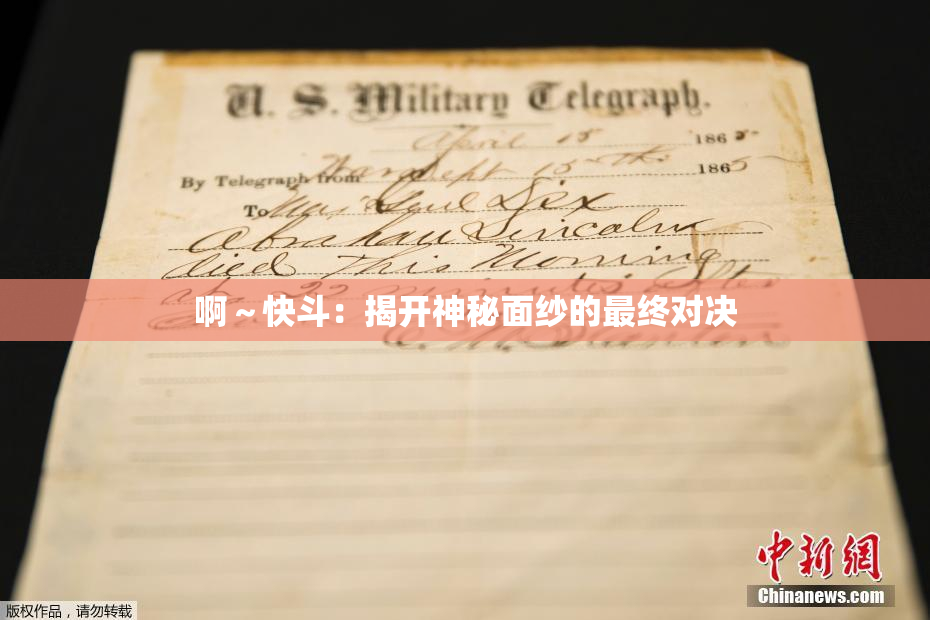 U. S. Military Telegraph.
April 15 1865
By Telegraph from War Dept 15th 1865
To Maj Genl Dix
Abraham Lincoln
died This Morning
at 22 minutes after
啊～快斗：揭开神秘面纱的最终对决
E. M. Stanton
中新网
Chinanews.com
版权作品，请勿转载